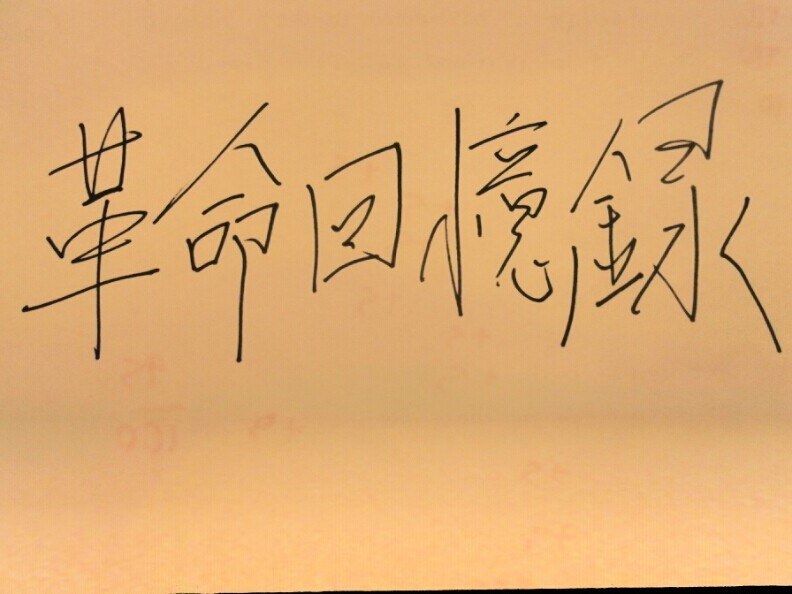 革命回憶録